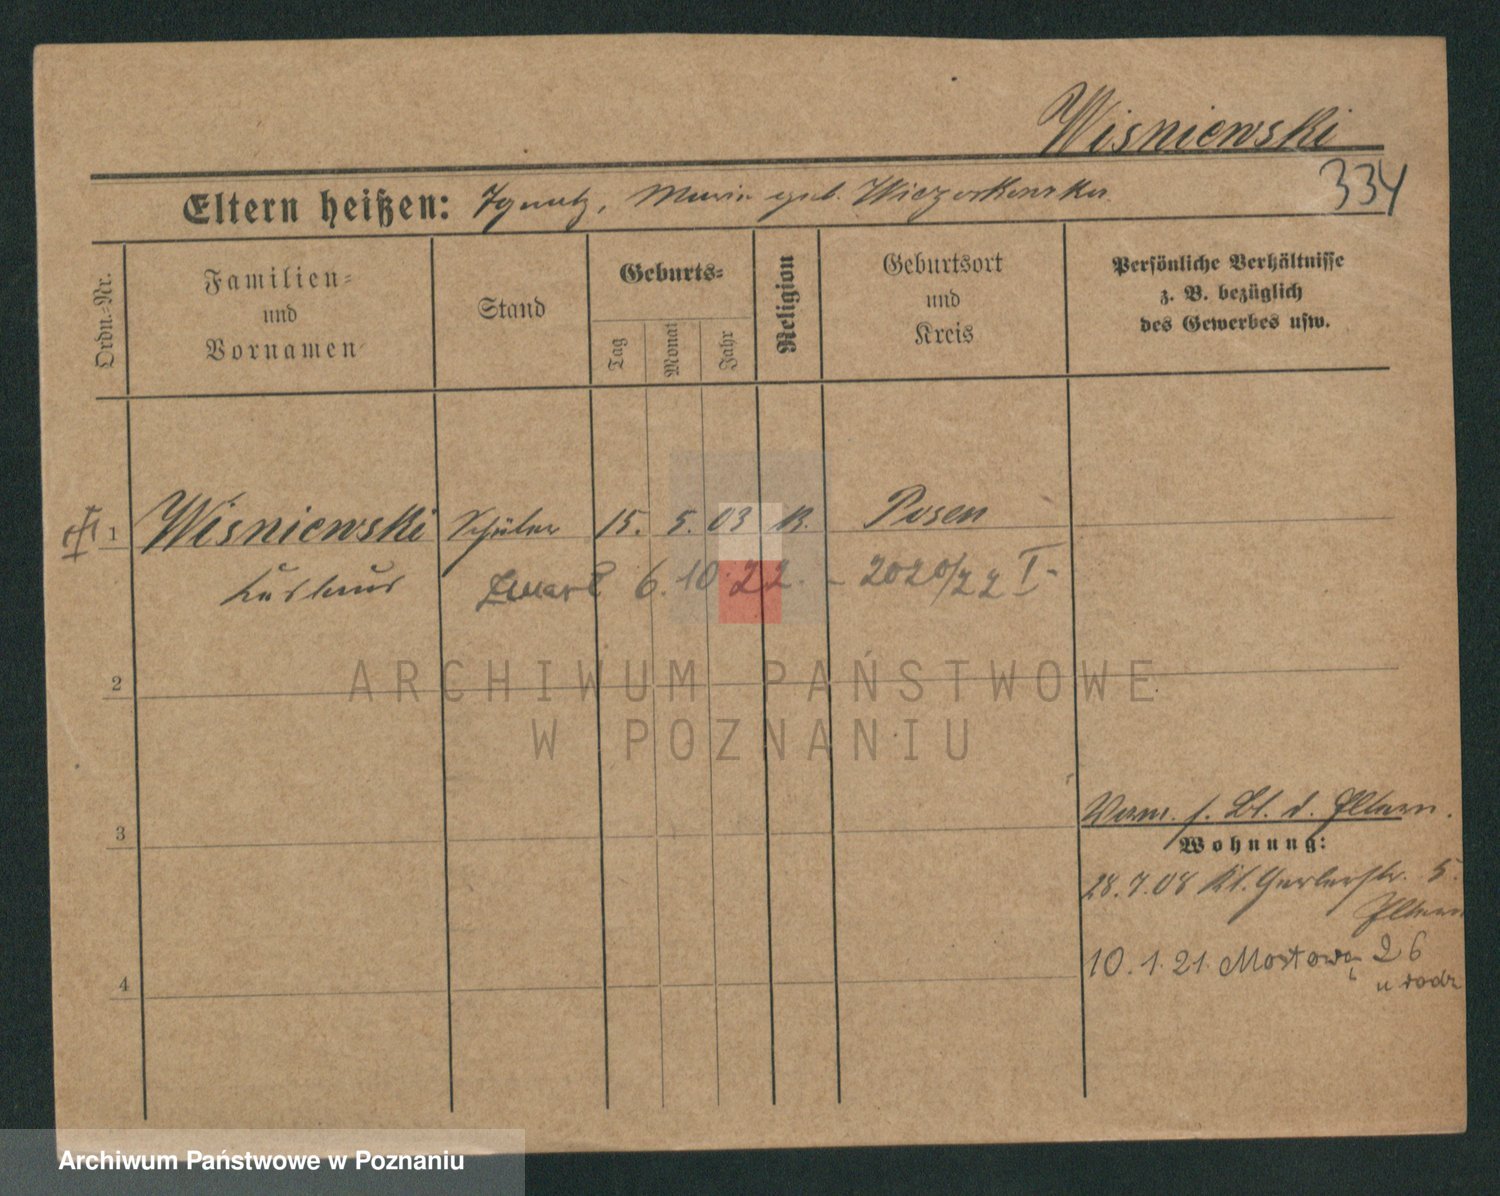 Wisniewski
334
Eltern heißen: Ignatz, Marie geb. Wieczorkowska
Ordn.-Nr.
Familien-
und
Vornamen
Stand
Geburts-
Tag
Monat
Jahr
Religion
Geburtsort
und
Kreis
Persönliche Verhältnisse
z. B. bezüglich
des Gewerbes usw.
1 Wisniewski Schüler 15. 5. 03 k. Posen
Zmarł 6. 10. 22. - 2020/22 I-
2
3
4
Verm. s. Bl. d. Eltern.
Wohnung:
28.7.08 Kl. Gerberstr. 5.
Eltern
10.1.21. Mostowa 26
u rodz
ARCHIWUM PAŃSTWOWE
W POZNANIU
Archiwum Państwowe w Poznaniu